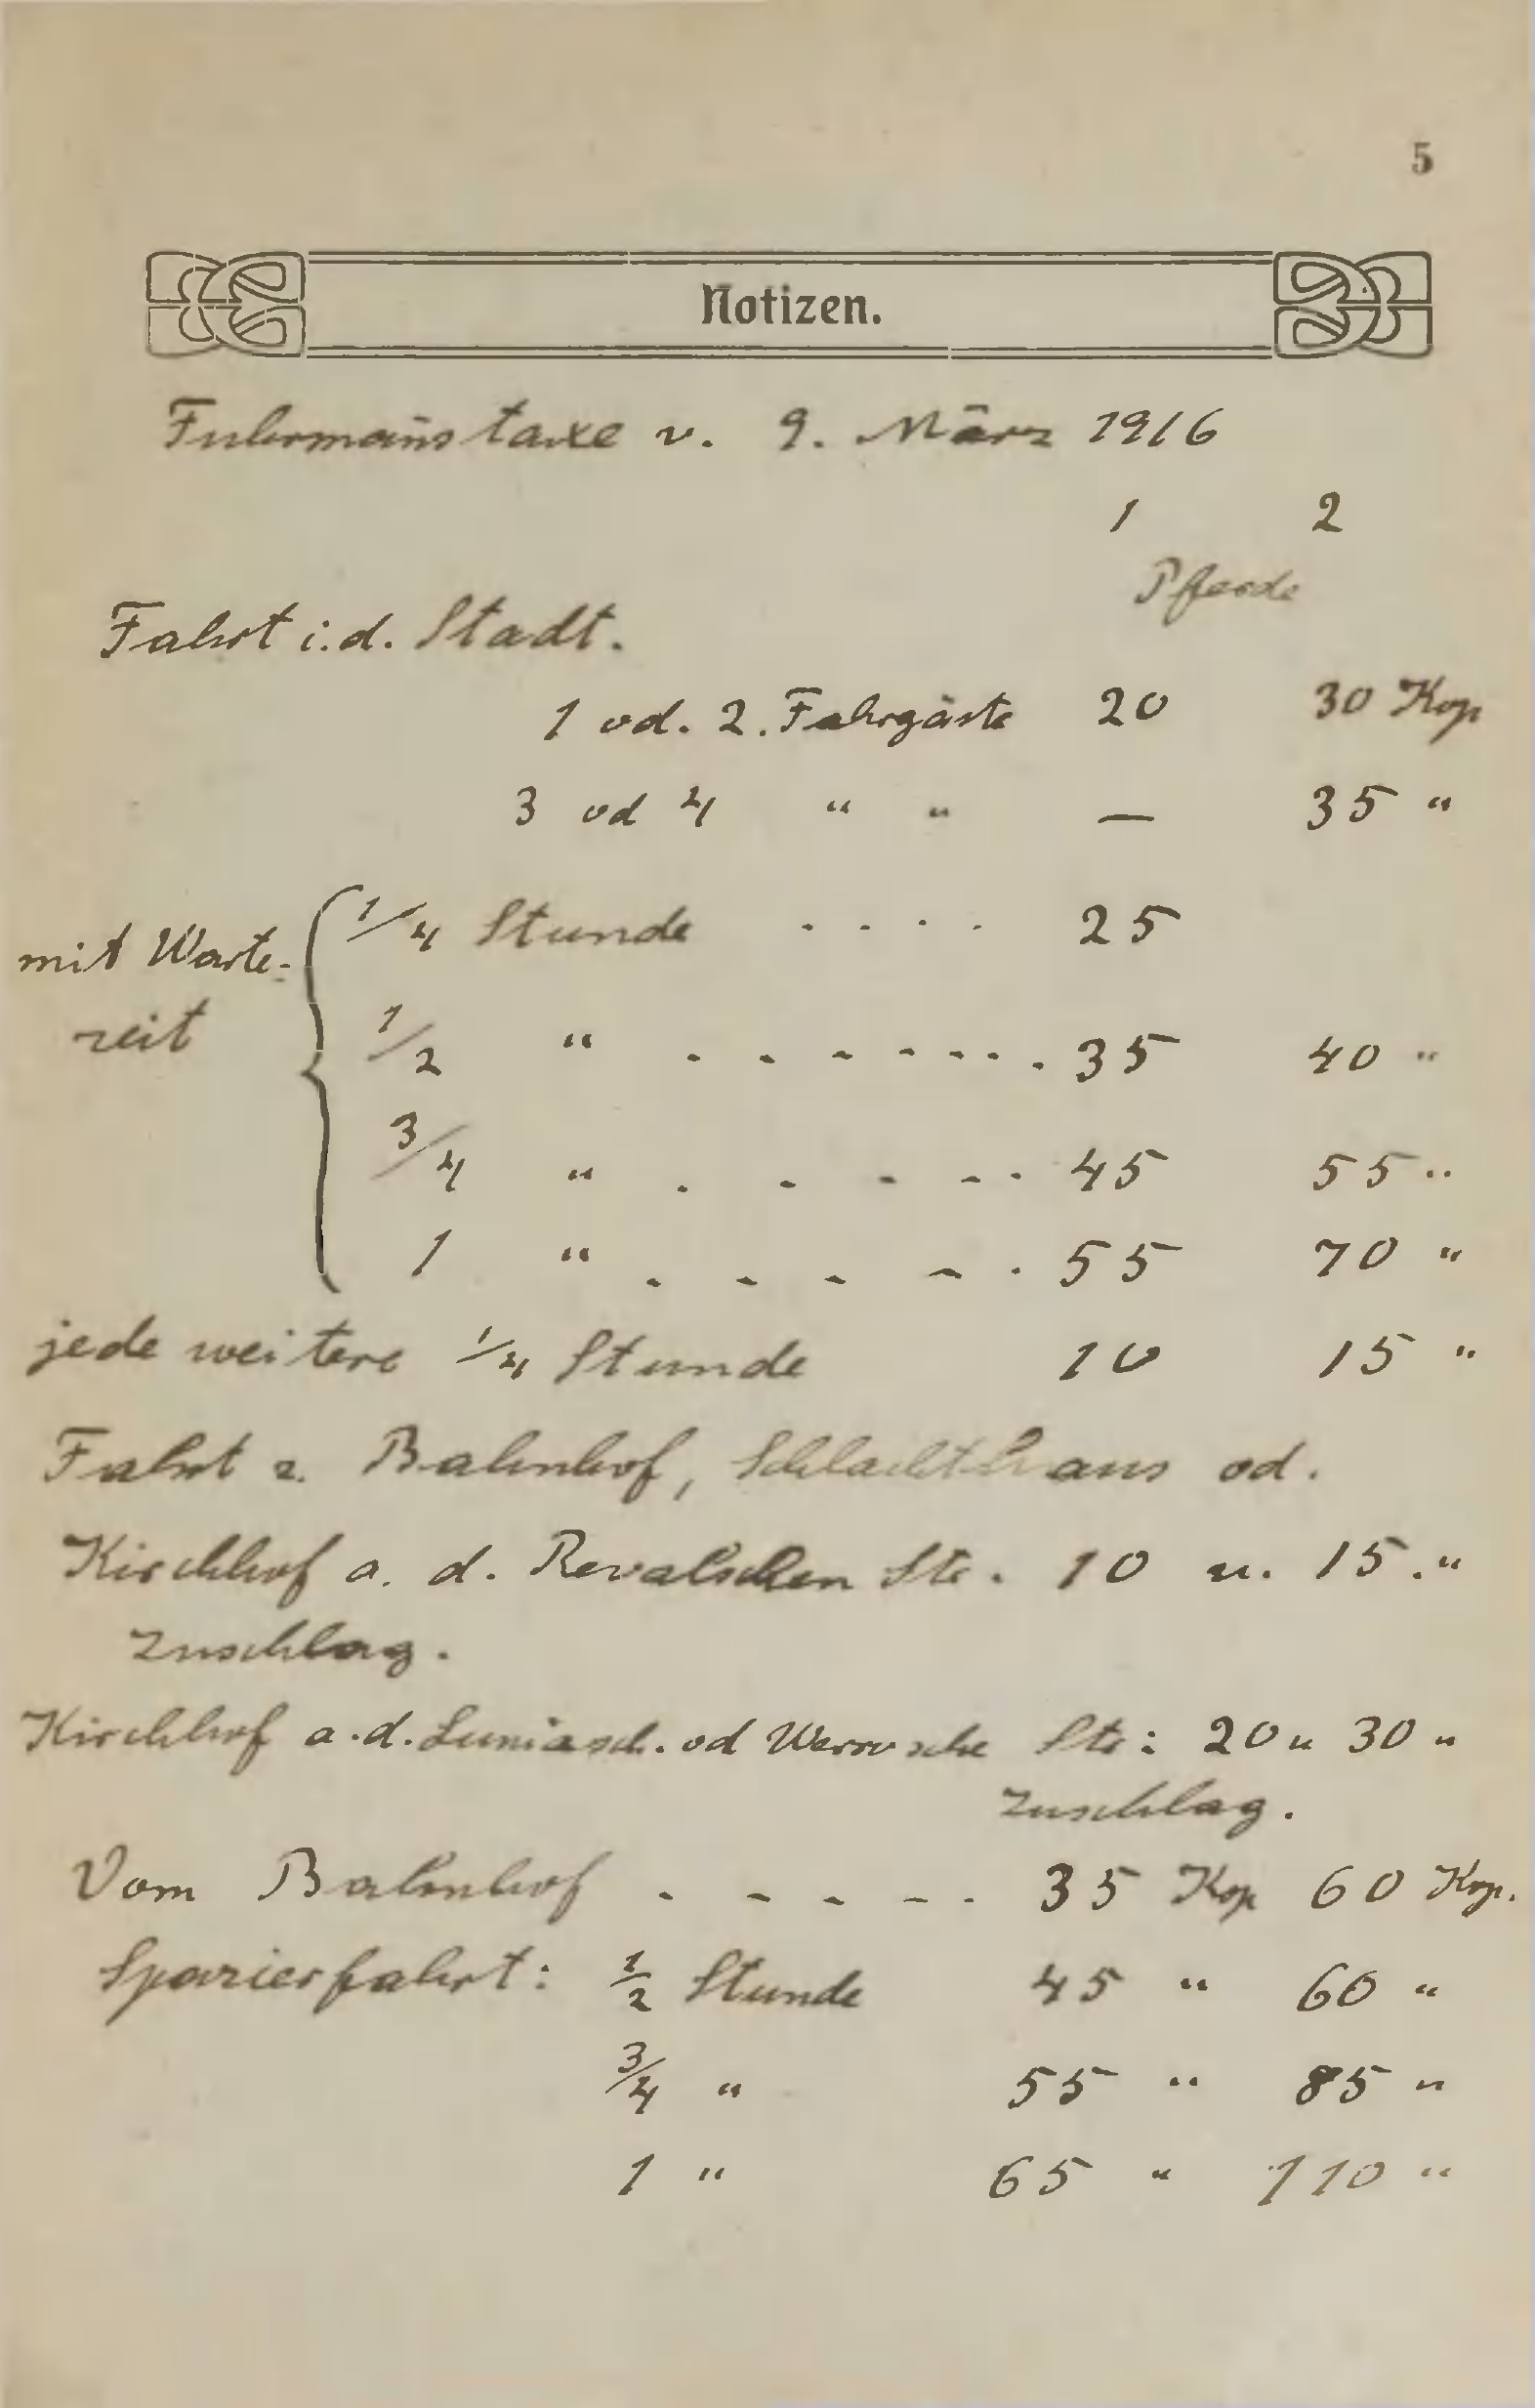 5
Notizen.
Fuhrman̄staxe v. 9. März 1916
1 2
Pferde
Fahrt i.d. Stadt.
1 od. 2. Fahrgäste 20 30 Kop
3 od 4 " " — 35 "
mit Warte- 1/4 Stunde . . . . 25
zeit 1/2 " . . . . . . . . 35 40 "
3/4 " . . . . . 45 55 "
1 " . . . . . 55 70 "
jede weitere 1/4 Stunde 10 15 "
Fahrt z. Bahnhof, Schlachthaus od.
Kirchhof a. d. Revalschen Str. 10 u. 15. "
Zuschlag.
Kirchhof a.d. Luniasch. od Werrosche Str: 20 u 30 "
Zuschlag.
Vom Bahnhof . . . . . . 35 Kop 60 Kop.
Spazierfahrt: 1/2 Stunde 45 " 60 "
3/4 " 55 " 85 "
1 " 65 " 110 "